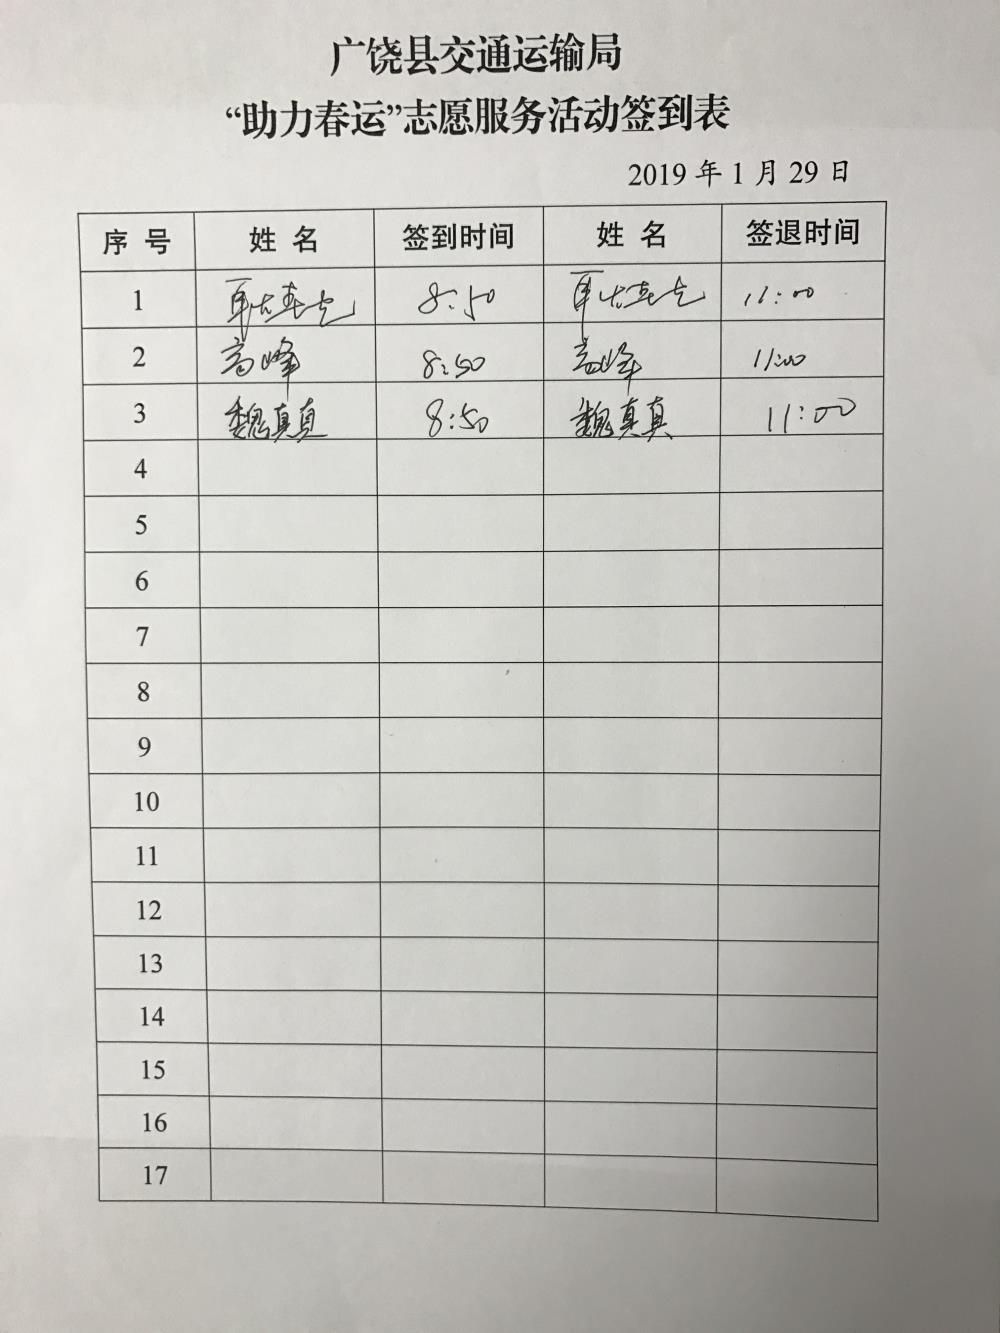 广饶县交通运输局
“助力春运”志愿服务活动签到表
2019 年 1 月 29 日
序 号 姓 名 签到时间 姓 名 签退时间
1 8:50 11:00
2 高峰 8:50 高峰 11:00
3 魏真真 8:50 魏真真 11:00
4
5
6
7
8
9
10
11
12
13
14
15
16
17